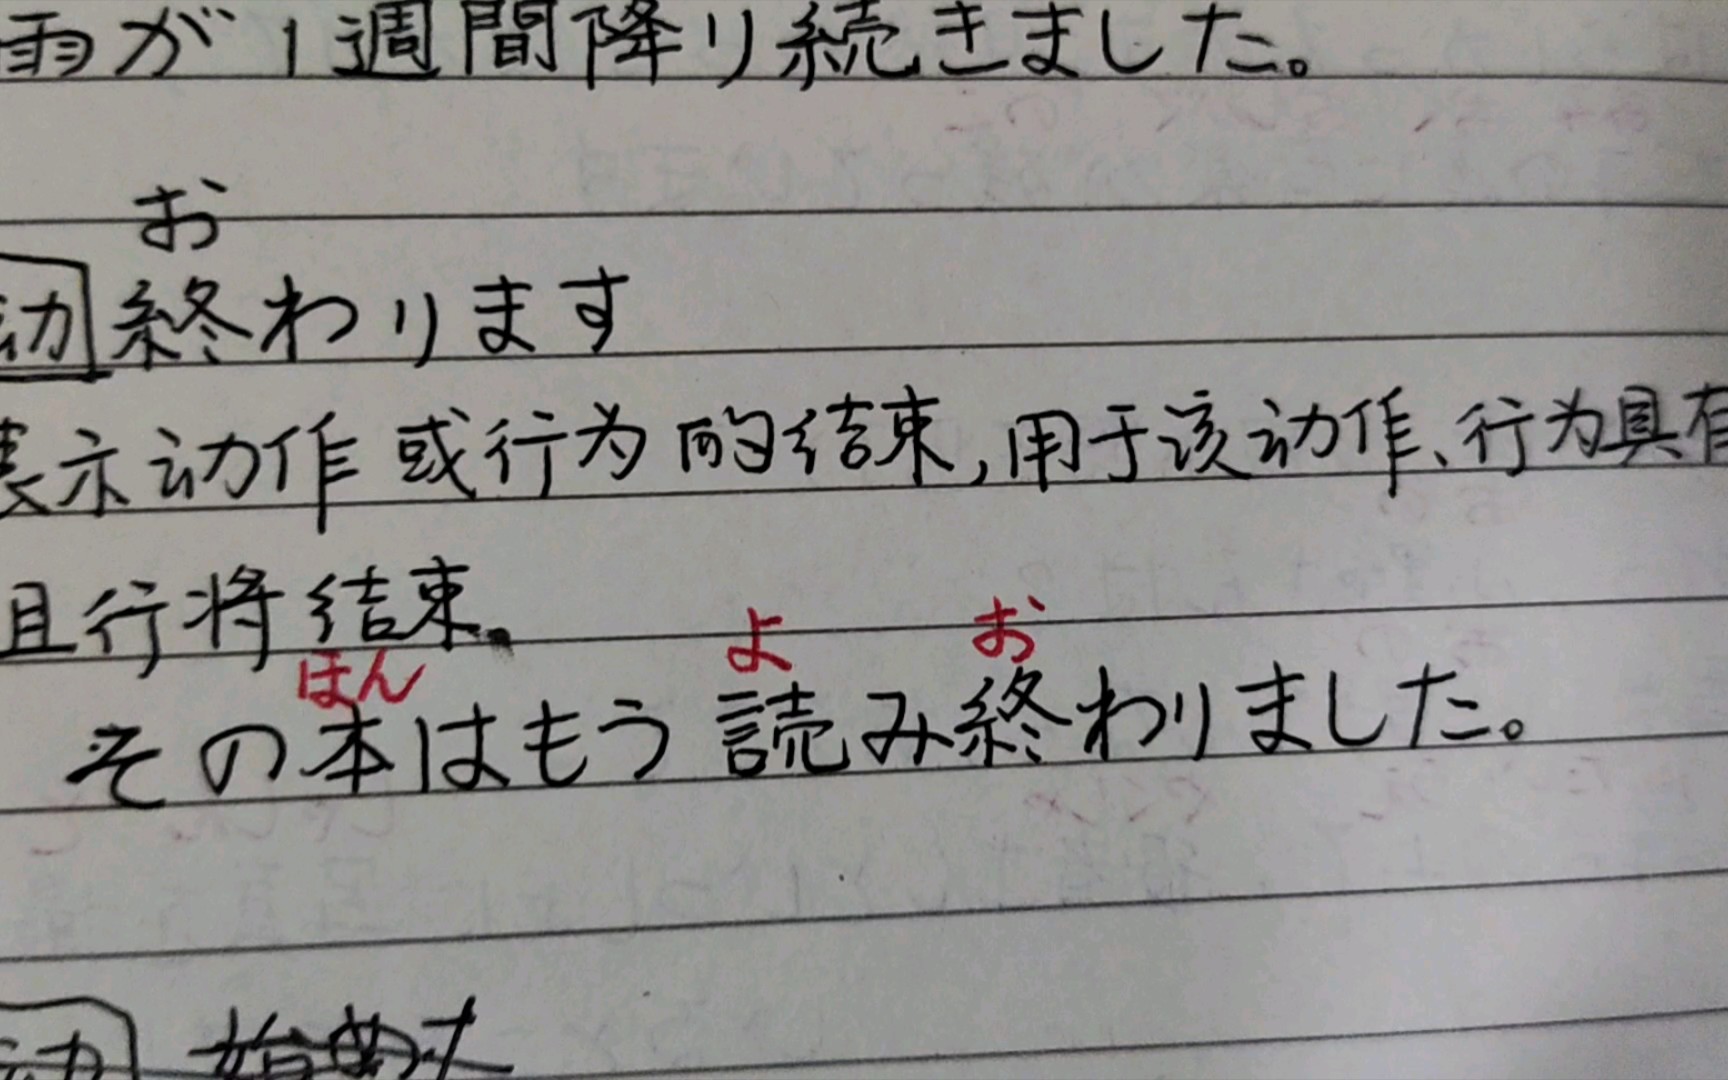 雨が1週間降り続きました。
お
动 終わります
表示动作或行为的结束,用于该动作、行为具有
且行将结束。
ほん よ お
その本はもう読み終わりました。
动 始め